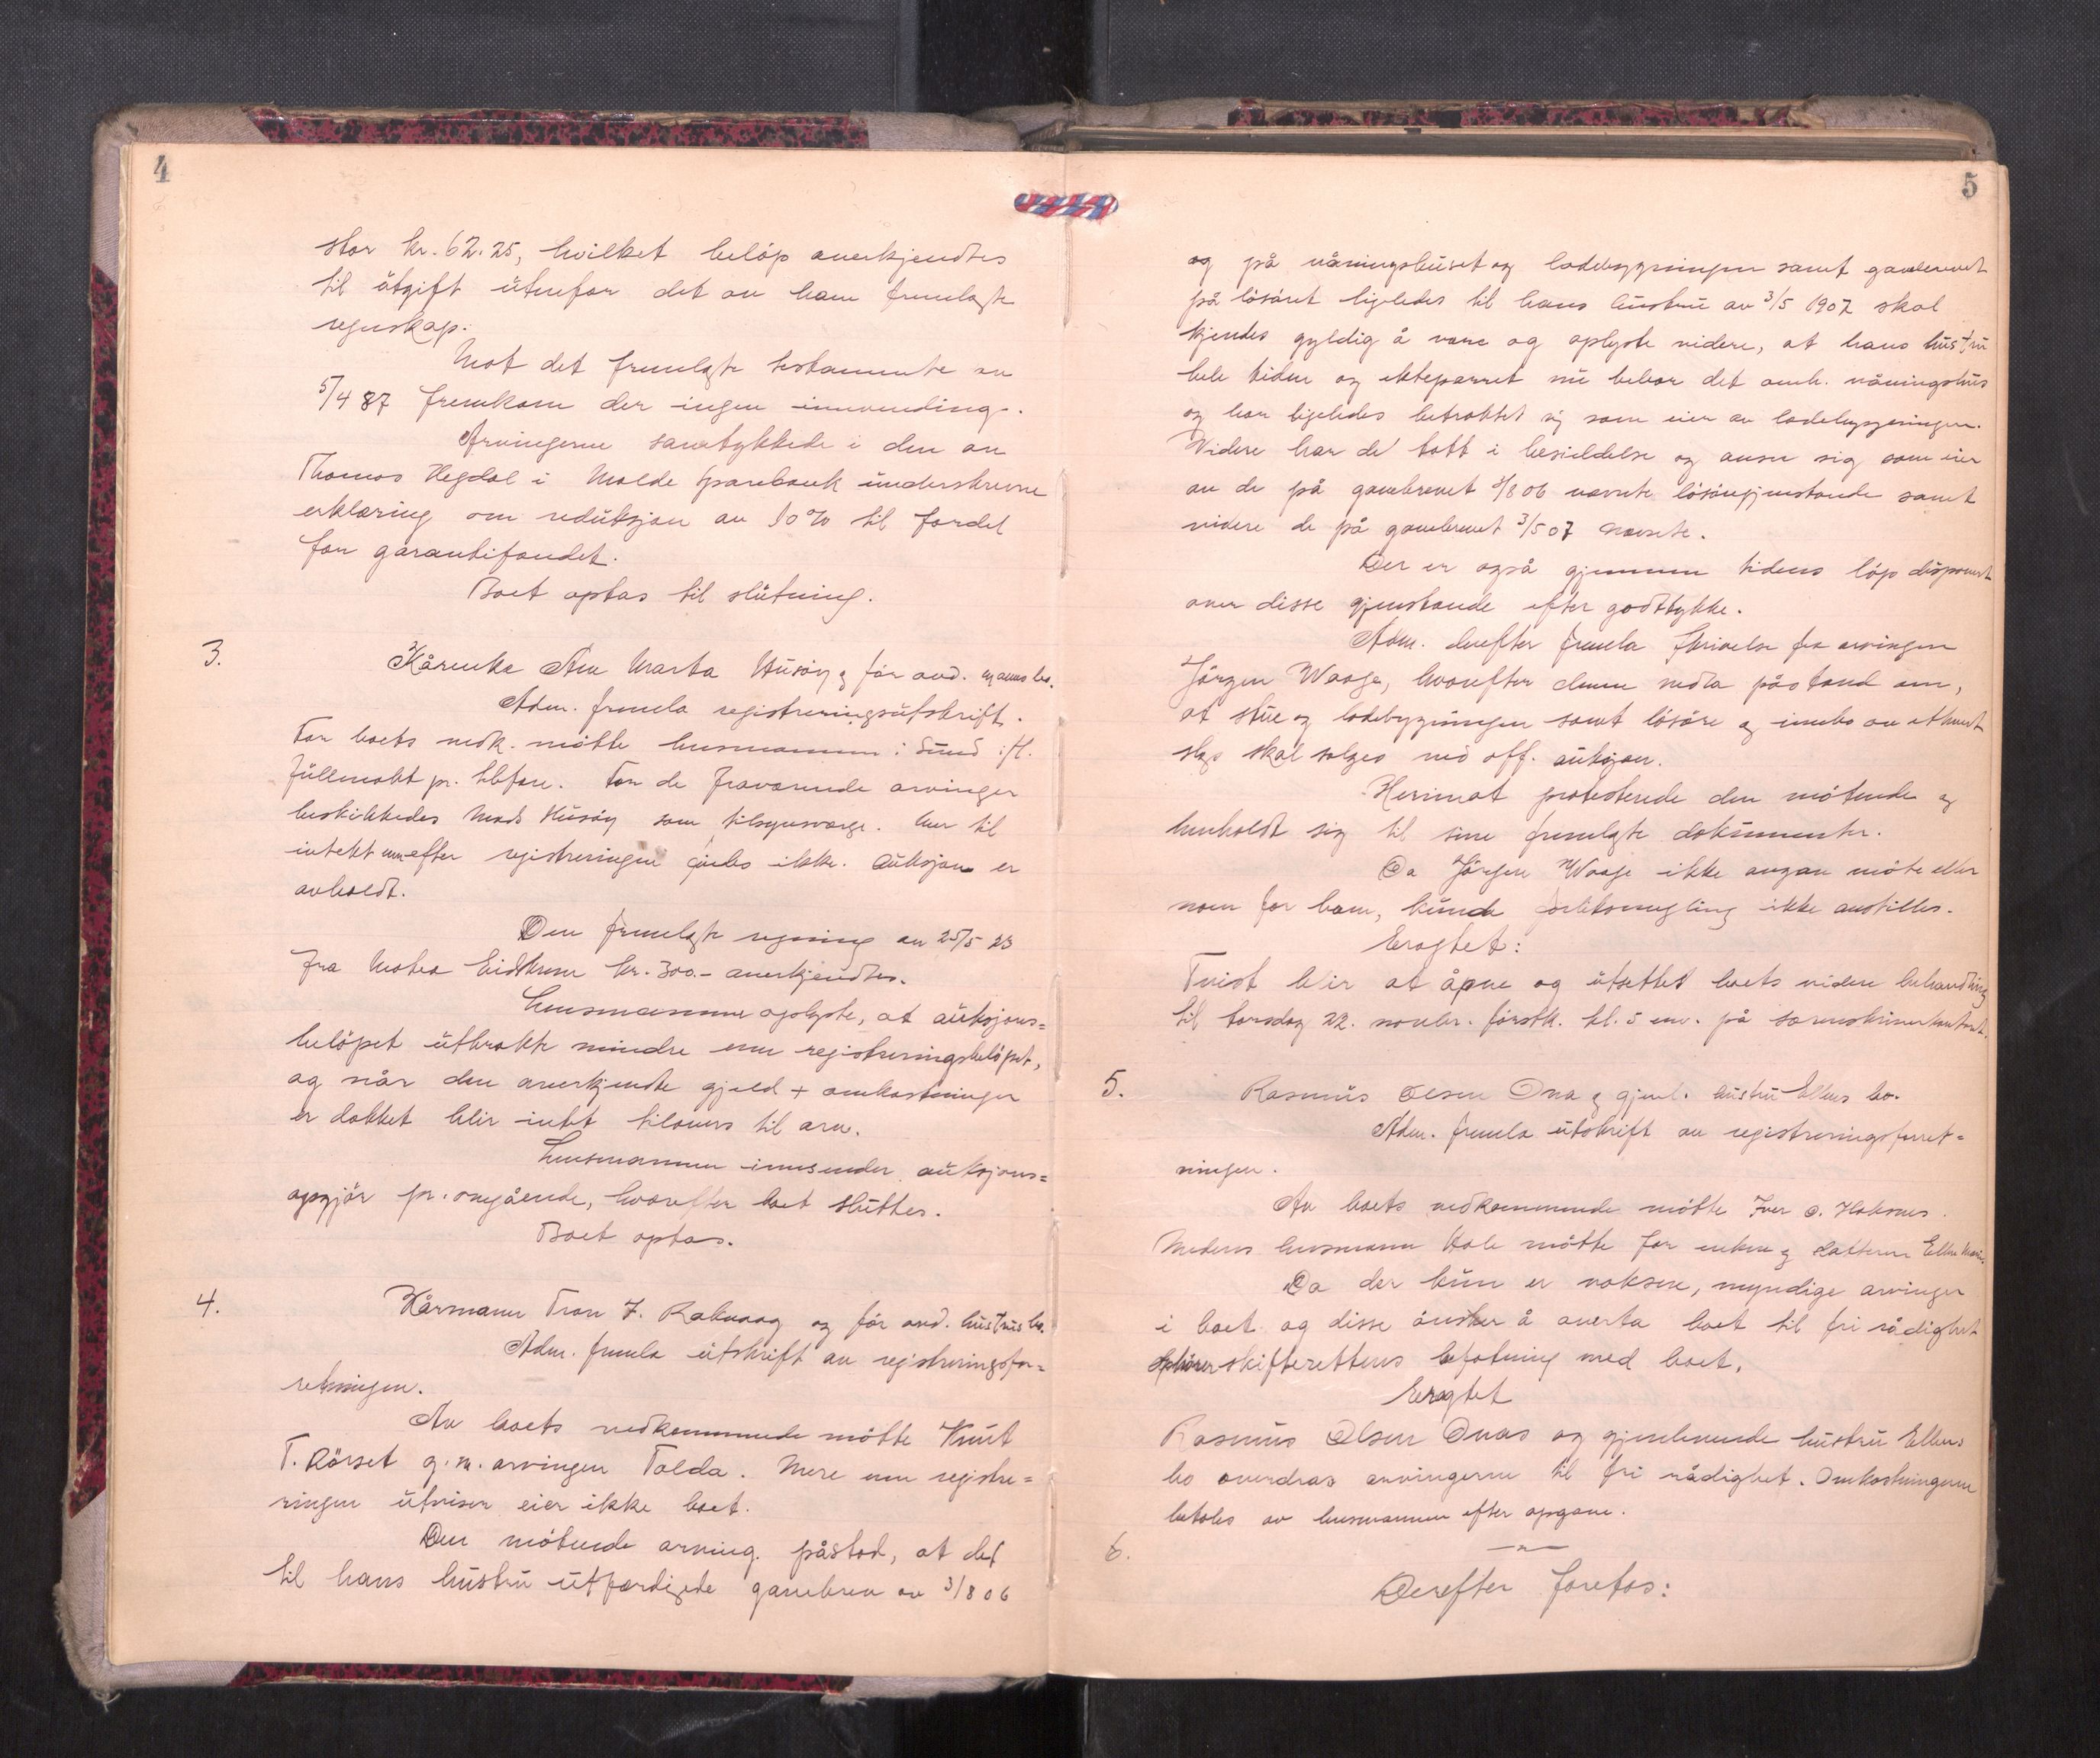 4
stor kr. 62.25, hvilket beløp anerkjendtes
til utgift utenfor det av ham fremlagte
regnskap.
Mot det fremlagte testamente av
5/4 87 fremkom der ingen innvending.
Arvingerne samtykkede i den av
Thomas Hegdal i Molde Sparebank underskrevne
erklæring om reduksjon av 10% til fordel
for garantifondet.
Boet optas til slutning.
3. Kårenke Ane Marta Husøy og før avd. manns bo.
Adm. fremla registreringsutskrift.
For boets vedk. møtte lensmannen i Sund if.
fullmakt pr. tlfon. For de fraværende arvinger
beskikkedes Mads Husøy som tilsynsværge. Mer til
intekt enn efter registreringen haves ikke. Auksjon er
avholdt.
Den fremlagte regning av 25/5 23
fra Matea Eidhusen kr. 300.- anerkjendtes.
Lensmannen oplyste, at auksjons=
beløpet utbrakte mindre enn registreringsbeløpet,
og når den anerkjendte gjeld + omkostninger
er dækket blir intet tilovers til arv.
Lensmannen innsender auksjons=
opgjør pr. omgående, hvorefter boet sluttes.
Boet optas.
4. Kårmann Tron J. Rakvaag og før avd. hustrus bo.
Adm. fremla utskrift av registreringsfor=
retningen.
Av boets vedkommende møtte Knut
T. Rørset g. m. arvingen Talda. Mere enn registre=
ringen utviser eier ikke boet.
Den møtende arving påstod, at det
til hans hustru utfærdigede gavebrev av 3/8 06
5
og på våningshuset og ladebygningen samt gavebrevet
på løsøret ligeledes til hans hustru av 3/5 1907 skal
kjendes gyldig å være og oplyste videre, at hans hustru
hele tiden og ekteparret nu bebor det omh. våningshus
og har ligeledes betraktet sig som eier av ladebygningen.
Videre har de tatt i besiddelse og anser sig som eier
av de på gavebrevet 3/8 06 nævnte løsøregjenstande samt
videre de på gavebrevet 3/5 07 nævnte.
Der er også gjennem tidens løp disponert
over disse gjenstande efter godttykke.
Adm. derefter fremla skrivelse fra arvingen
Jørgen Waage, hvorefter denne nedla påstand om,
at stue og ladebygningen samt løsøre og innbo av ethvert
slags skal selges ved off. auksjon.
Herimot protesterede den møtende og
henholdt sig til sine fremlagte dokumenter.
Da Jørgen Waage ikke angav møte eller
noen for ham, kunde forliksmegling ikke anstilles.
Eragtet:
Tvist blir at åpne og utsettes boets videre behandling
til torsdag 22. novbr. førstk. kl. 5 em. på sorenskriverkontoret.
5. Rasmus Olsen Ona og gjenl. hustru Ellens bo.
Adm. fremla utskrift av registreringsforret=
ningen.
Av boets vedkommende møtte Iver O. Haksnes.
Medens lensmann Hole møtte for enken og datteren Ellen Marie.
Da der kun er voksne, myndige arvinger
i boet og disse ønsker å overta boet til fri rådighet
ophører skifterettens befatning med boet.
Eragtet
Rasmus Olsen Onas og gjenlevende hustru Ellens
bo overdras arvingerne til fri rådighet. Omkostningerne
betales av lensmannen efter opgave.
6. —"—
Derefter foretas: